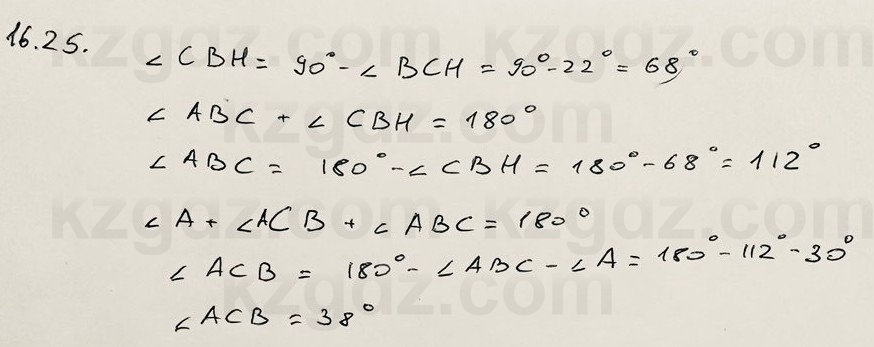 16.25.
∠ CBH = 90° - ∠ BCH = 90° - 22° = 68°
∠ ABC + ∠ CBH = 180°
∠ ABC = 180° - ∠ CBH = 180° - 68° = 112°
∠ A + ∠ACB + ∠ ABC = 180°
∠ ACB = 180° - ∠ ABC - ∠ A = 180° - 112° - 30°
∠ ACB = 38°
kzgdz.com
kzgdz.com
kzgdz.com
kzgdz.com
kzgdz.com
kzgdz.com